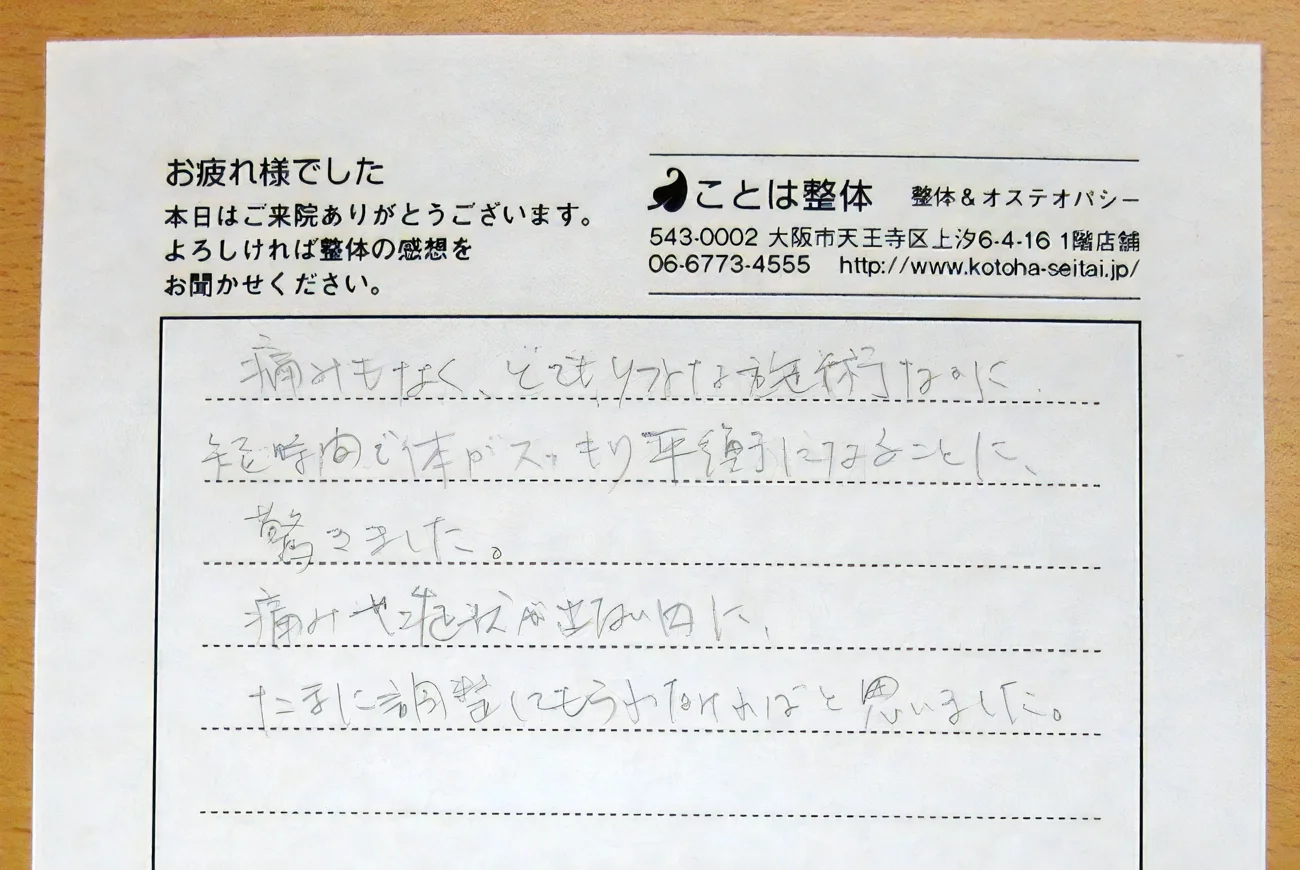 お疲れ様でした
本日はご来院ありがとうございます。
よろしければ整体の感想を
お聞かせください。
ことは整体 整体&オステオパシー
543-0002 大阪市天王寺区上汐6-4-16 1階店舗
06-6773-4555 http://www.kotoha-seitai.jp/
痛みもなく、とてもソフトな施術なのに、
短時間で体がスッキリ平穏になることに、
驚きました。
痛みや症状が出ない内に、
たまに調整してもらわなければと思いました。